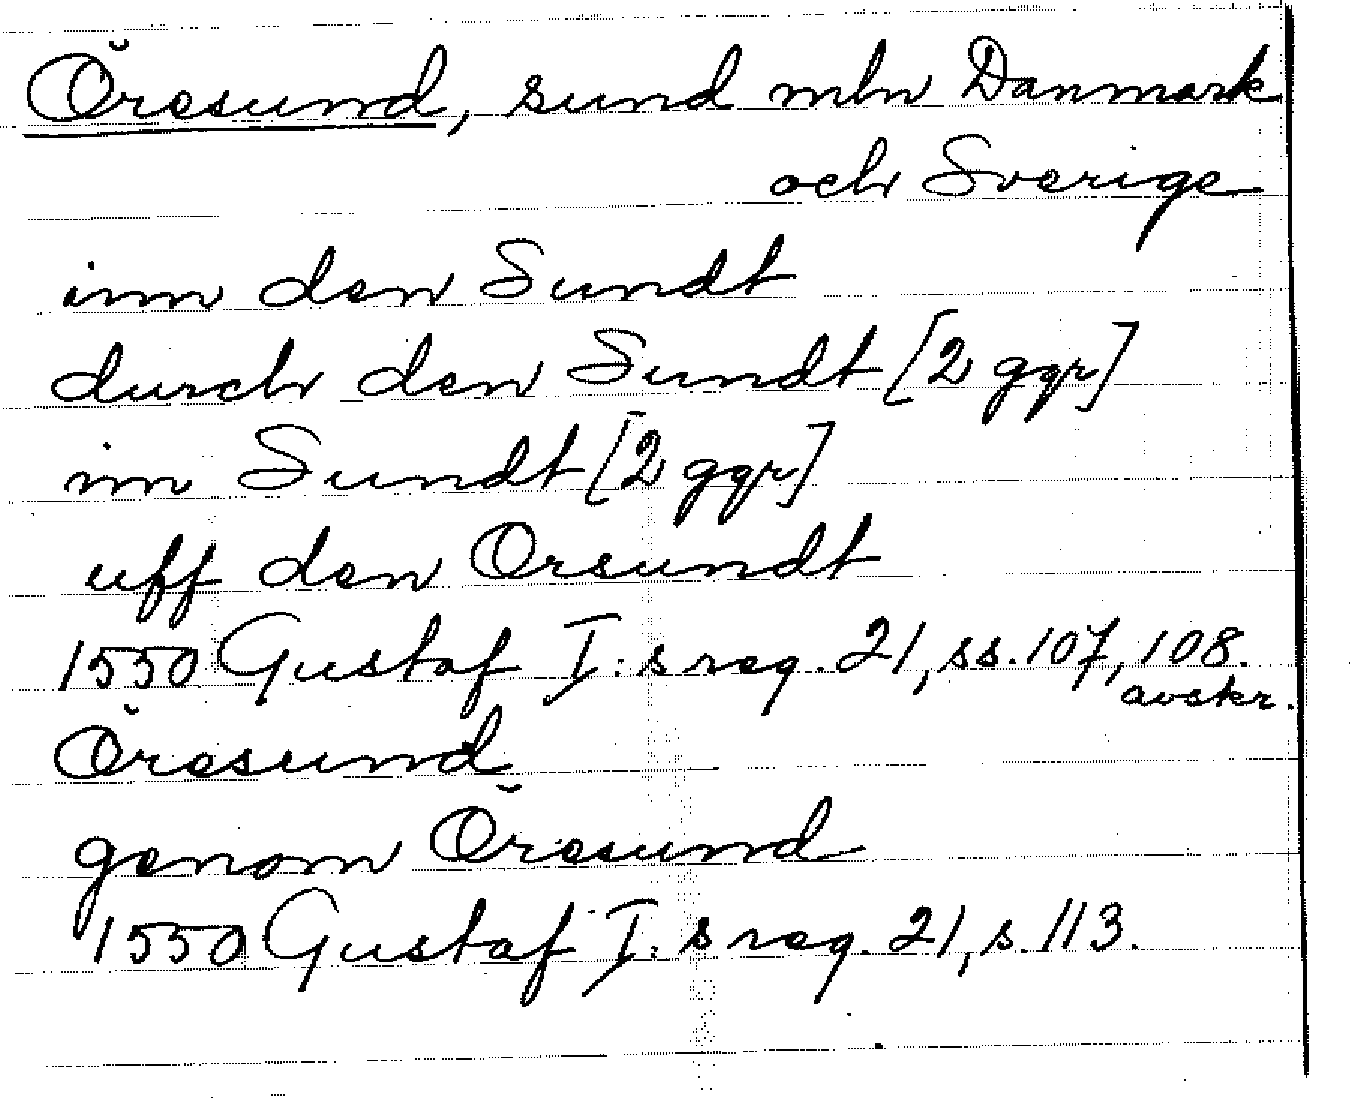 Öresund, sund mln Danmark
och Sverige
inn den Sundt
durch den Sundt [2 ggr]
im Sundt [2 ggr]
uff den Orsundt
1550 Gustaf I:s reg. 21, ss. 107, 108.
avskr.
Öresund
genom Öresund
1550 Gustaf I:s reg. 21, s. 113.